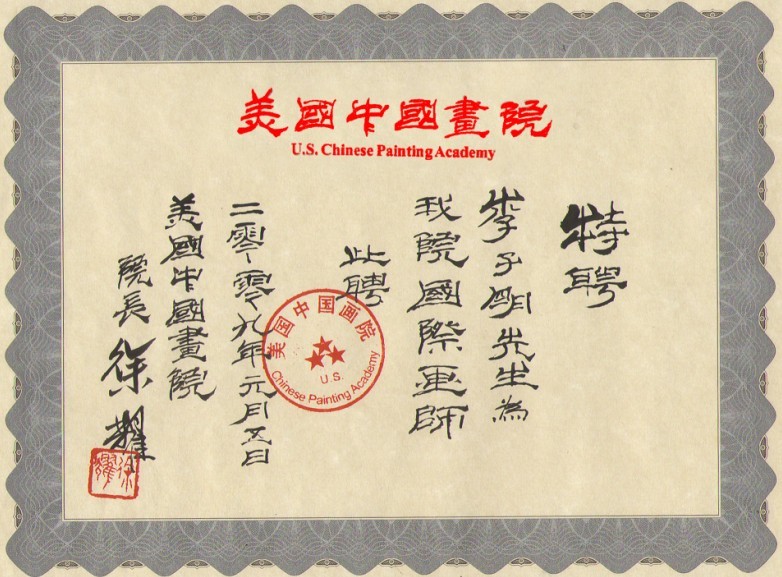 美國中國畫院
U.S. Chinese Painting Academy
特聘
李子明先生為
我院國際畫師
此聘
二零零九年元月五日
美國中國畫院
院長 徐耀
美国中国画院
U.S.
Chinese Painting Academy
徐耀